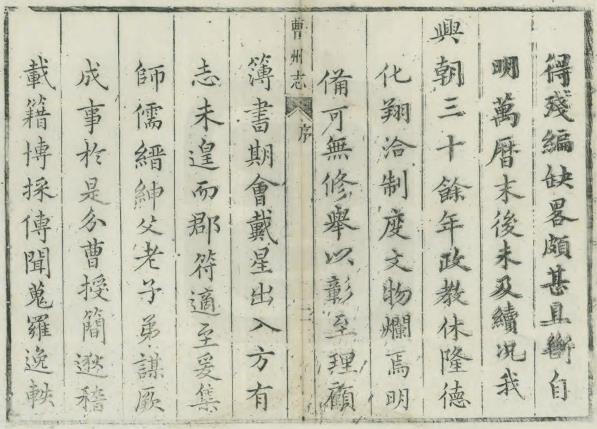 得殘編缺畧頗甚且斷自
明萬曆末後未及續况我
興朝三十餘年政教休隆德
化翔洽制度文物爛焉明
備可無修舉以彰至理顧
曹州志 序 二
簿書期會戴星出入方有
志未遑而郡符適至爰集
師儒縉紳父老子弟謀厥
成事於是分曹授簡遜稽
載籍博採傳聞蒐羅逸軼